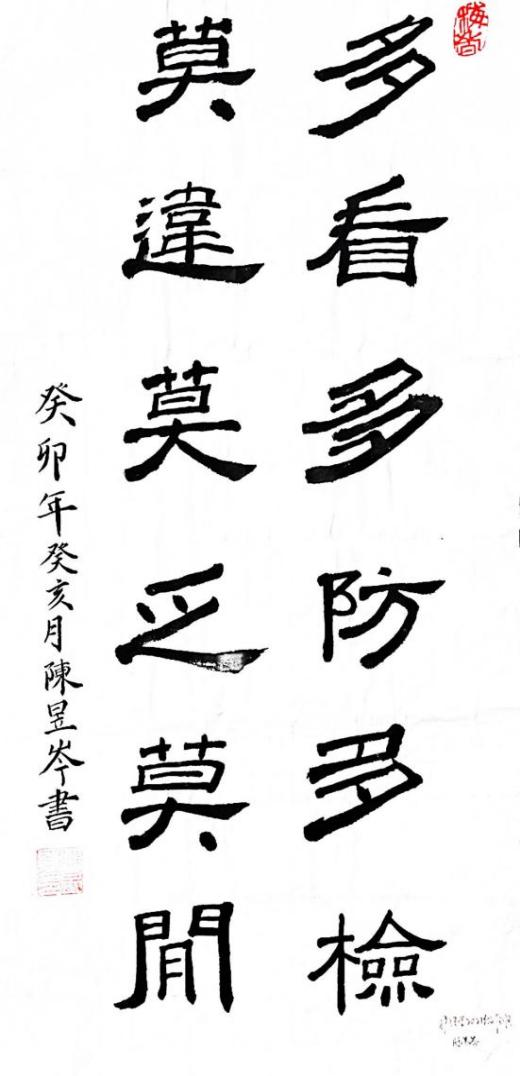 多看多防多檢
莫違莫乏莫閒
癸卯年癸亥月陳昱岑書